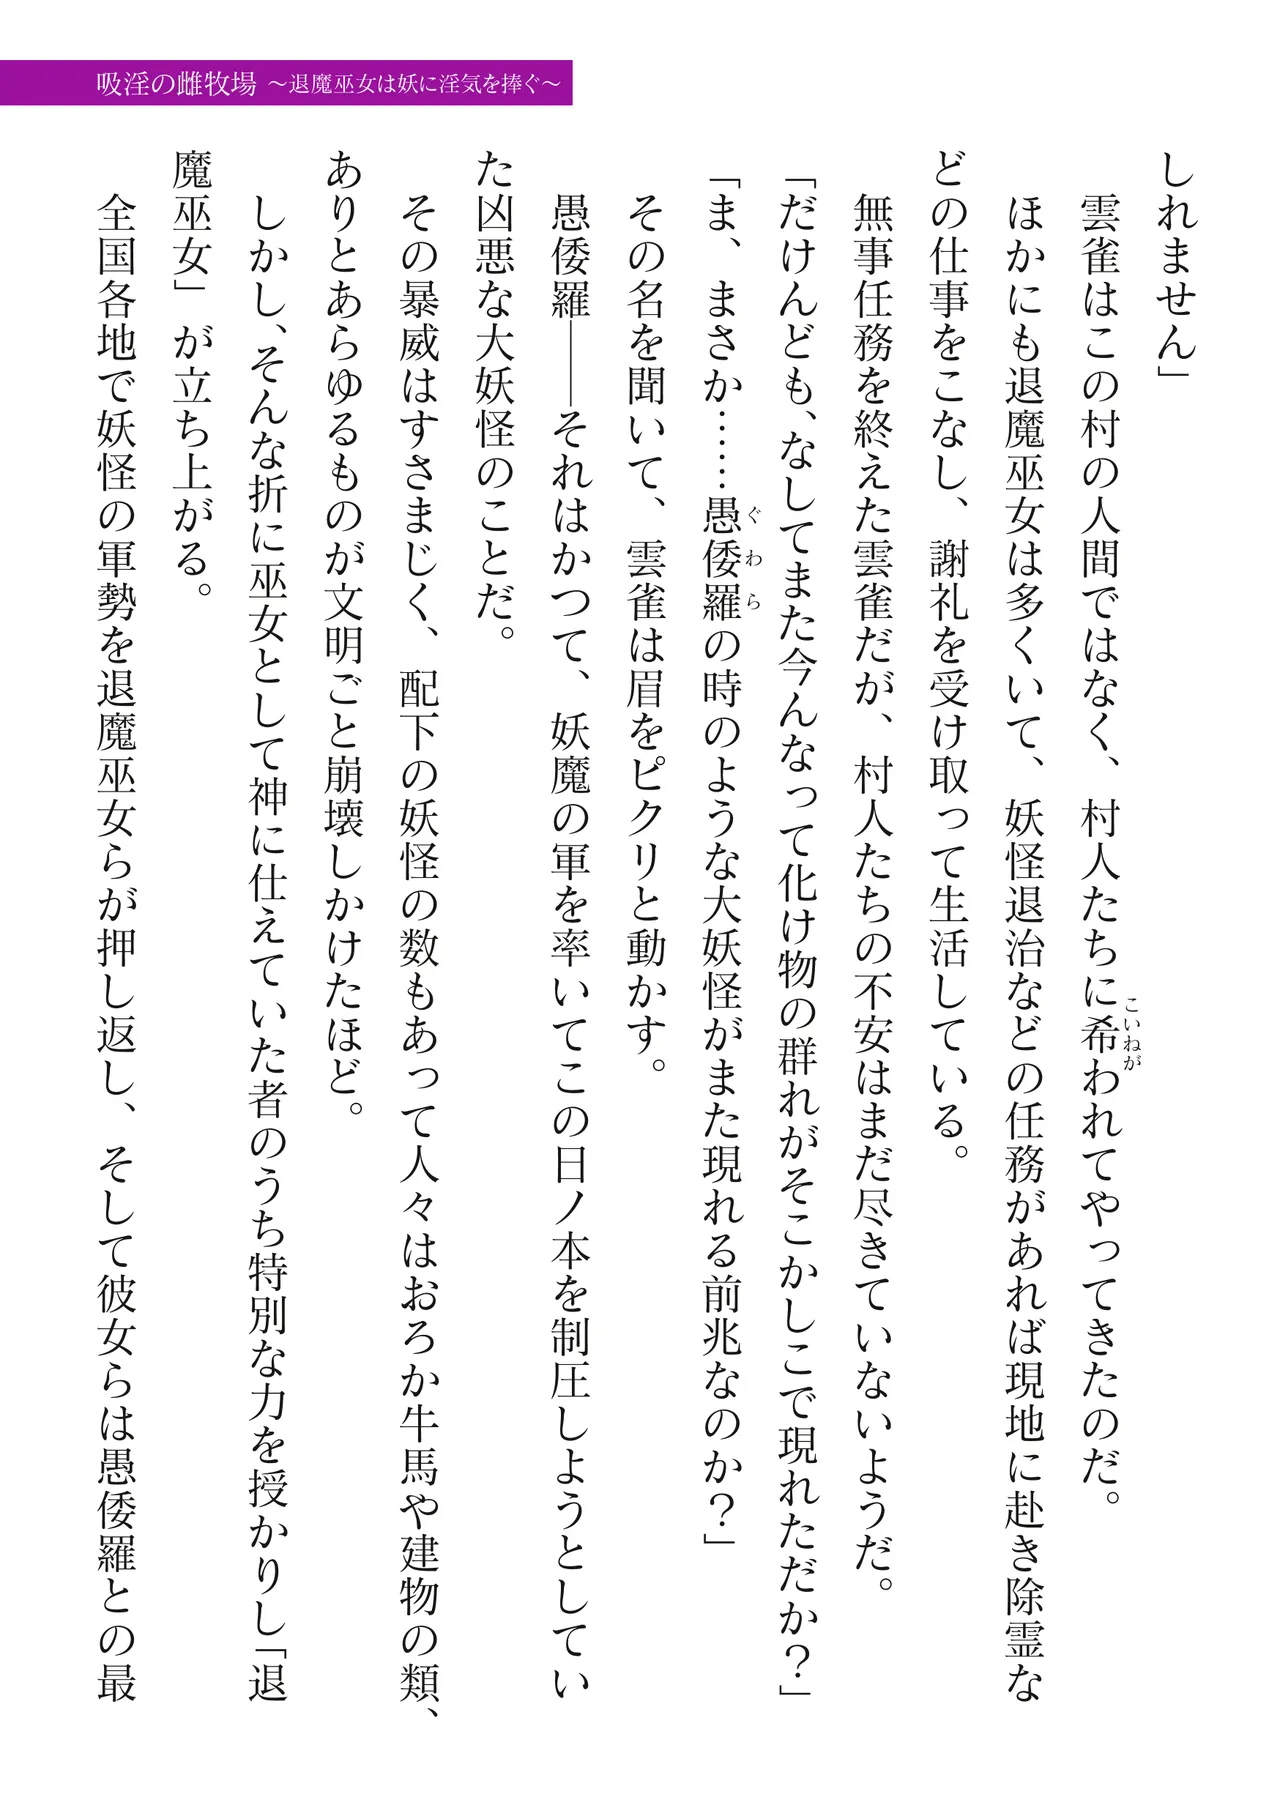 吸淫の雌牧場 ～退魔巫女は妖に淫気を捧ぐ～
しれません」
雲雀はこの村の人間ではなく、村人たちに希われてやってきたのだ。
こいねが
ほかにも退魔巫女は多くいて、妖怪退治などの任務があれば現地に赴き除霊な
どの仕事をこなし、謝礼を受け取って生活している。
無事任務を終えた雲雀だが、村人たちの不安はまだ尽きていないようだ。
「だけんども、なしてまた今んなって化け物の群れがそこかしこで現れただか？」
「ま、まさか……愚倭羅の時のような大妖怪がまた現れる前兆なのか？」
ぐわら
その名を聞いて、雲雀は眉をピクリと動かす。
愚倭羅――それはかつて、妖魔の軍を率いてこの日ノ本を制圧しようとしてい
た凶悪な大妖怪のことだ。
その暴威はすさまじく、配下の妖怪の数もあって人々はおろか牛馬や建物の類、
ありとあらゆるものが文明ごと崩壊しかけたほど。
しかし、そんな折に巫女として神に仕えていた者のうち特別な力を授かりし「退
魔巫女」が立ち上がる。
全国各地で妖怪の軍勢を退魔巫女らが押し返し、そして彼女らは愚倭羅との最